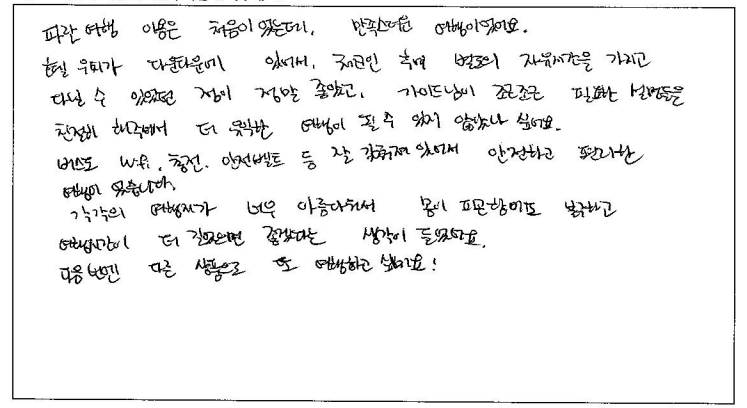 파란 여행 이용은 처음이었는데, 만족스러운 여행이었어요.
호텔 위치가 다운타운에 있어서, 체크인 후에 별도의 자유시간을 가지고
다닐 수 있었던 점이 정말 좋았고, 가이드님이 조근조근 필요한 설명들을
친절히 해주셔서 더 유익한 여행이 될 수 있지 않았나 싶어요.
버스도 wifi, 충전, 안전벨트 등 잘 갖춰져 있어서 안전하고 편리한
여행이었습니다.
각각의 여행지가 너무 아름다워서 몸이 피곤함에도 불구하고
여행시간이 더 길었으면 좋겠다는 생각이 들었어요.
다음 번엔 다른 상품으로 또 여행하고 싶어요!